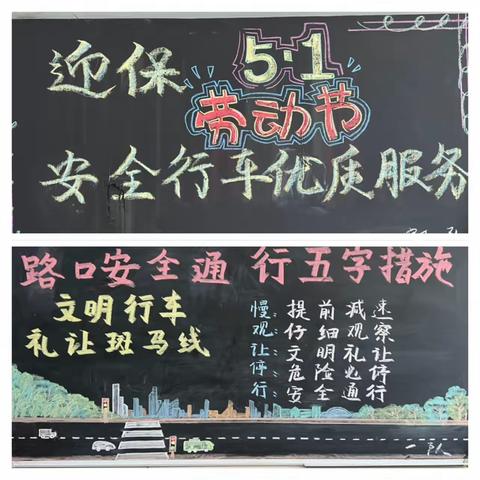 迎保 5·1
劳动节
安全行车优质服务
路口安全通行五字措施
文明行车
礼让斑马线
慢:提前减速
观:仔细观察
让:文明礼让
停:危险必停
行:安全通行
一队